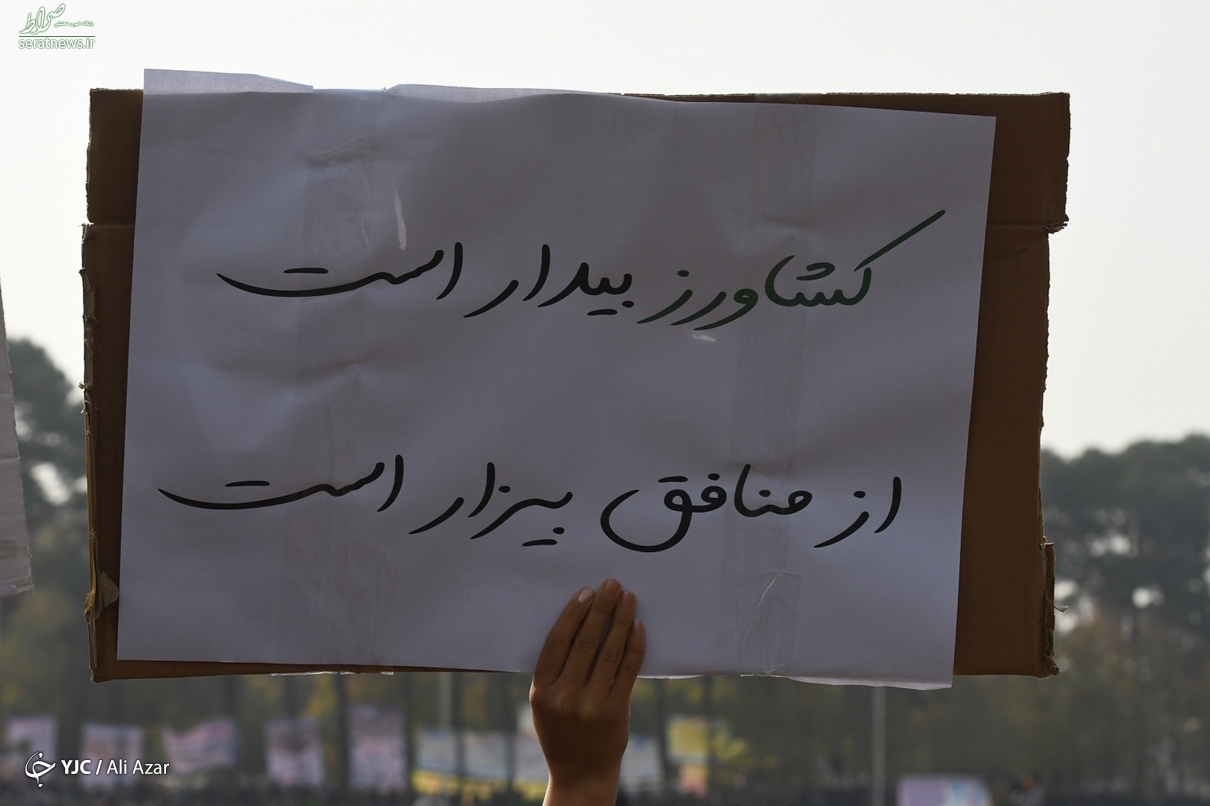 صراط
seratnews.ir
کشاورز بیدار است
از منافق بیزار است
YJC / Ali Azar